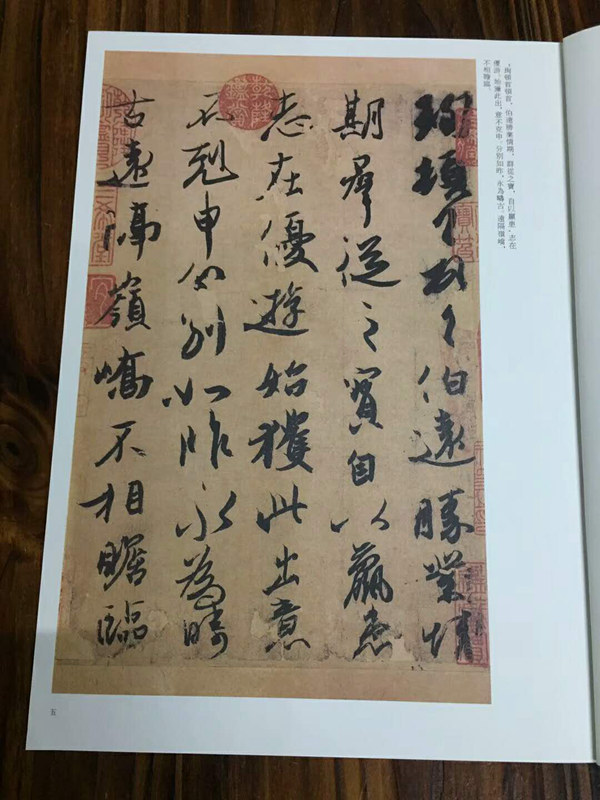 珣頓首頓首，伯遠勝業情期，群從之寶，自以羸患，志在
優游，始獲此出，意不克申，分別如昨，永為疇古，遠隔嶺嶠，
不相瞻臨。
珣頓首頓首伯遠勝業情
期羣從之寶自以羸患
志在優遊始獲此出意
不剋申分別如昨永為疇
古遠隔嶺嶠不相瞻臨
五